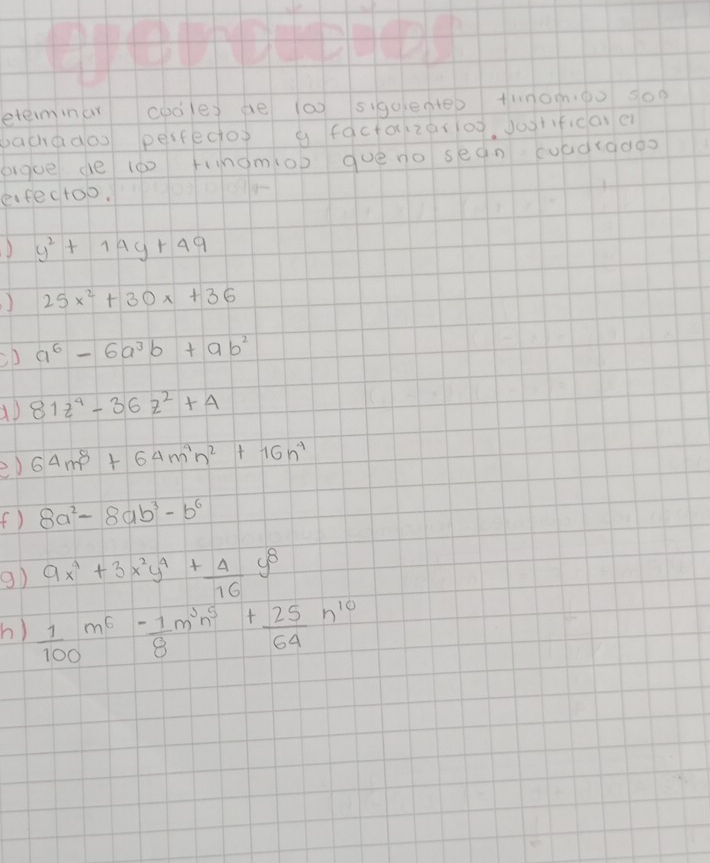 ejercicios
eterminar cuales de los siguientes trinomios son
uadrados perfectos y factorizarlos. Justificar el
orque de los trinomios que no sean cuadrados
erfectos.
) y² + 14y + 49
) 25x² + 30x + 36
c) a⁶ - 6a³b + 9b²
d) 81z⁴ - 36z² + 4
e) 64m⁸ + 64m⁴n² + 16n⁴
f) 8a² - 8ab³ - b⁶
g) 9x⁴ + 3x²y⁴ + 4/16 y⁸
h) 1/100 m⁶ - 1/8 m³n⁵ + 25/64 n¹⁰